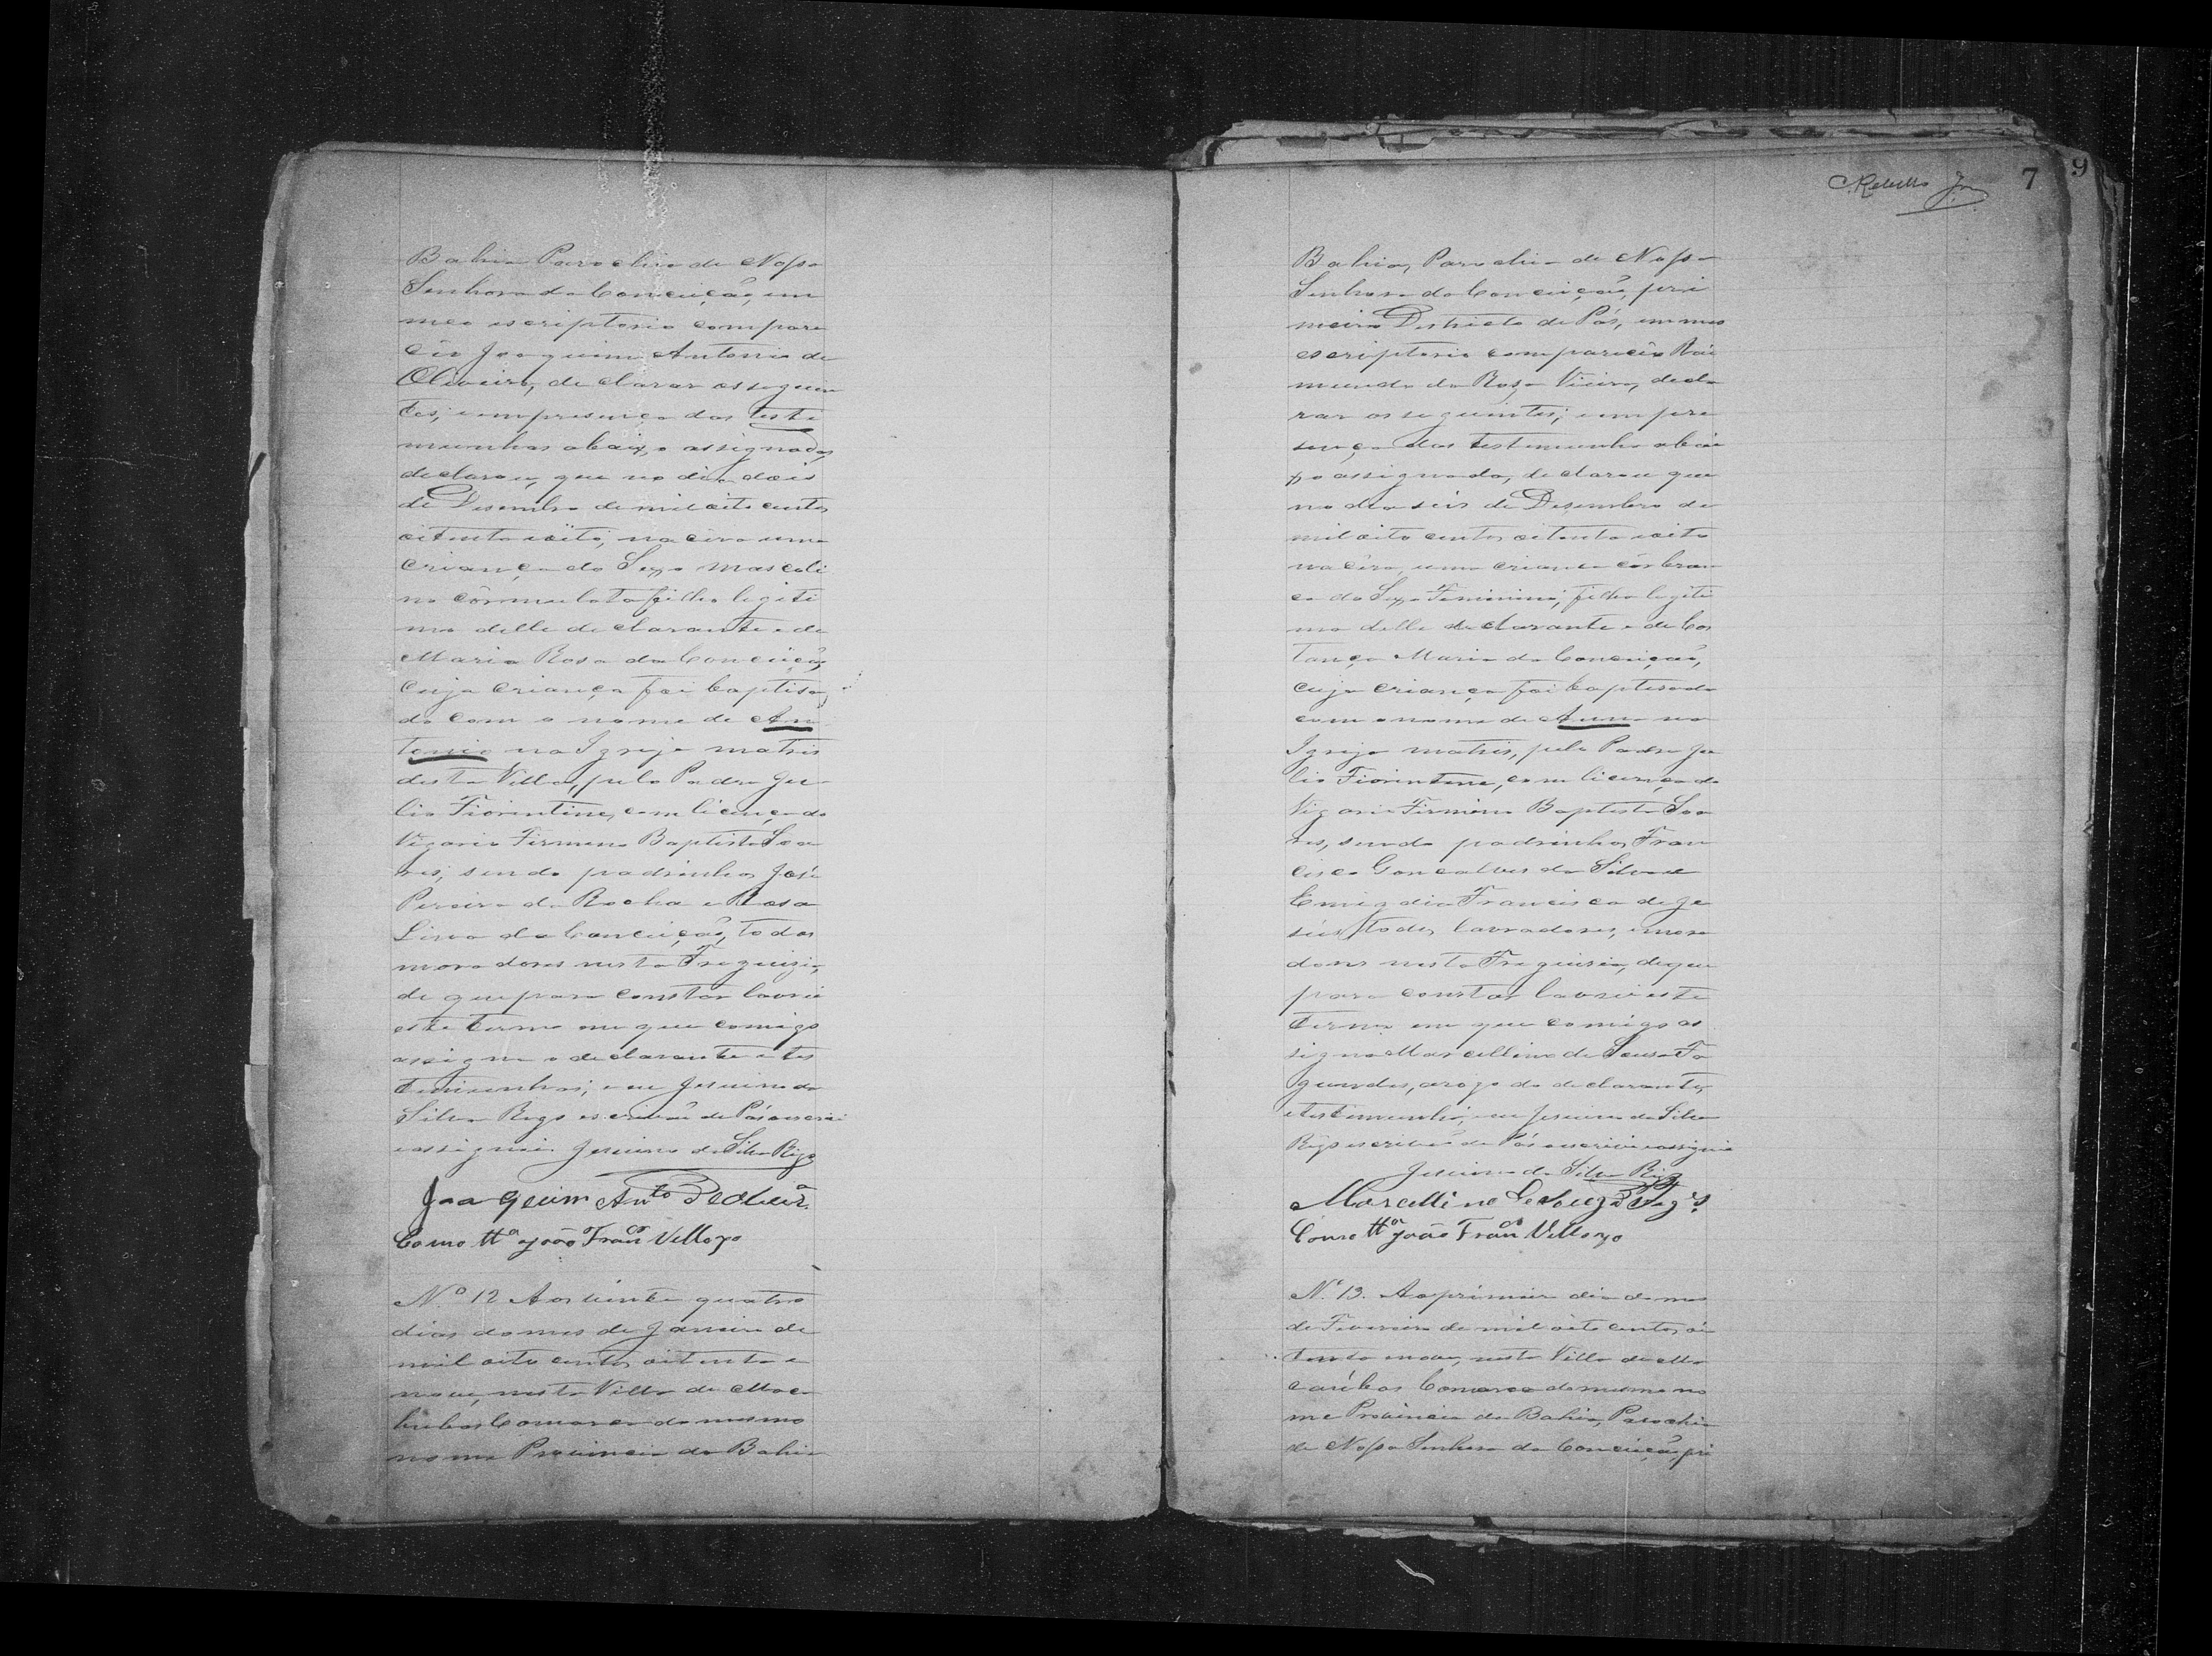 Bahia Parochia de Nossa
Senhora da Conceição, em
meo escriptorio compare
ceo Joaquim Antonio de
Oliveira, declarar osseguin
tes; eempresença das teste
munhas abaixo assignadas
declarou, que no dia dois
de Desembro de mil oito centos
oitenta eoito, naceva uma
criança do Sexo mascoli
no côr mulato filho legiti
mo delle declarante e de
Maria Rosa da Conceição,
cuja criança foi baptisa
do com o nome de An
tonio na Igreja matris
desta Villa, pelo Padre Ju
lio Fiorintine, com licença do
Vigario Firmino Baptista Soa
res, sendo padrinhos José
Pereira da Rocha e Rosa
Lina da Conceição, todos
moradores nesta Freguizia,
de que para constar lavrei
este termo em que comigo
assigna o declarante e tes
temunhas; e eu Jesuino da
Silva Rego escrivão de Pás oescrivi
eassignei. Jesuino da Silva Rego
Joaquim Anto de Olivra
Como tta João Franco Vellozo
No 12 Aos vinte quatro
dias do mes de Janeiro de
mil oito centos oitenta e
nove, nesta Villa de Maca
hubas Comarca do mesmo
nome Provincia da Bahia
C. Rebello Jor
7
9
Bahia, Parochia de Nossa
Senhora da Conceição, pri
meiro Destricto de Pás, em meo
escriptorio compareceo Rai
mundo da Rosa Vieira, decla
rar osseguintes; eempre
sença das testemunha abai
xo assignada, declarou que
no dia seis de Desembro de
mil oito centos oitenta eoito
naceva, uma crianca côr bran
ca do Sexo Feminino, filha legiti
ma delle declarante e de Cos
tança Maria da Conceição,
cuja criança foi baptisada
com o nome de Anna na
Igreja matris, pelo Padre Ju
lio Fiorintine, com licença do
Vigario Firmino Baptista Soa
res, sendo padrinhos Fran
cisco Goncalves da Silva e
Emigdia Francisca de Je
sús, todos lavradores, emora
dores nesta Freguisia, de que
para constar lavrei este
termo em que comigo as
signa Marcellino de Sousa Fa
gundes, arogo do declarante,
etestemunha, eeu Jesuino da Silva
Rego escrivão de Pás oescrivi eassignei
Jesuino da Silva Rego
Marcellino de Souza Fagds
Como tta João Franco Vellozo
No 13. Ao primeiro dia do mes
de Fevereiro de mil oito centos oi
tenta enove, nesta Villa de Ma
caúbas Comarca do mesmo no
me Provincia da Bahia, Parochia
de Nossa Senhora da Conceição, pri